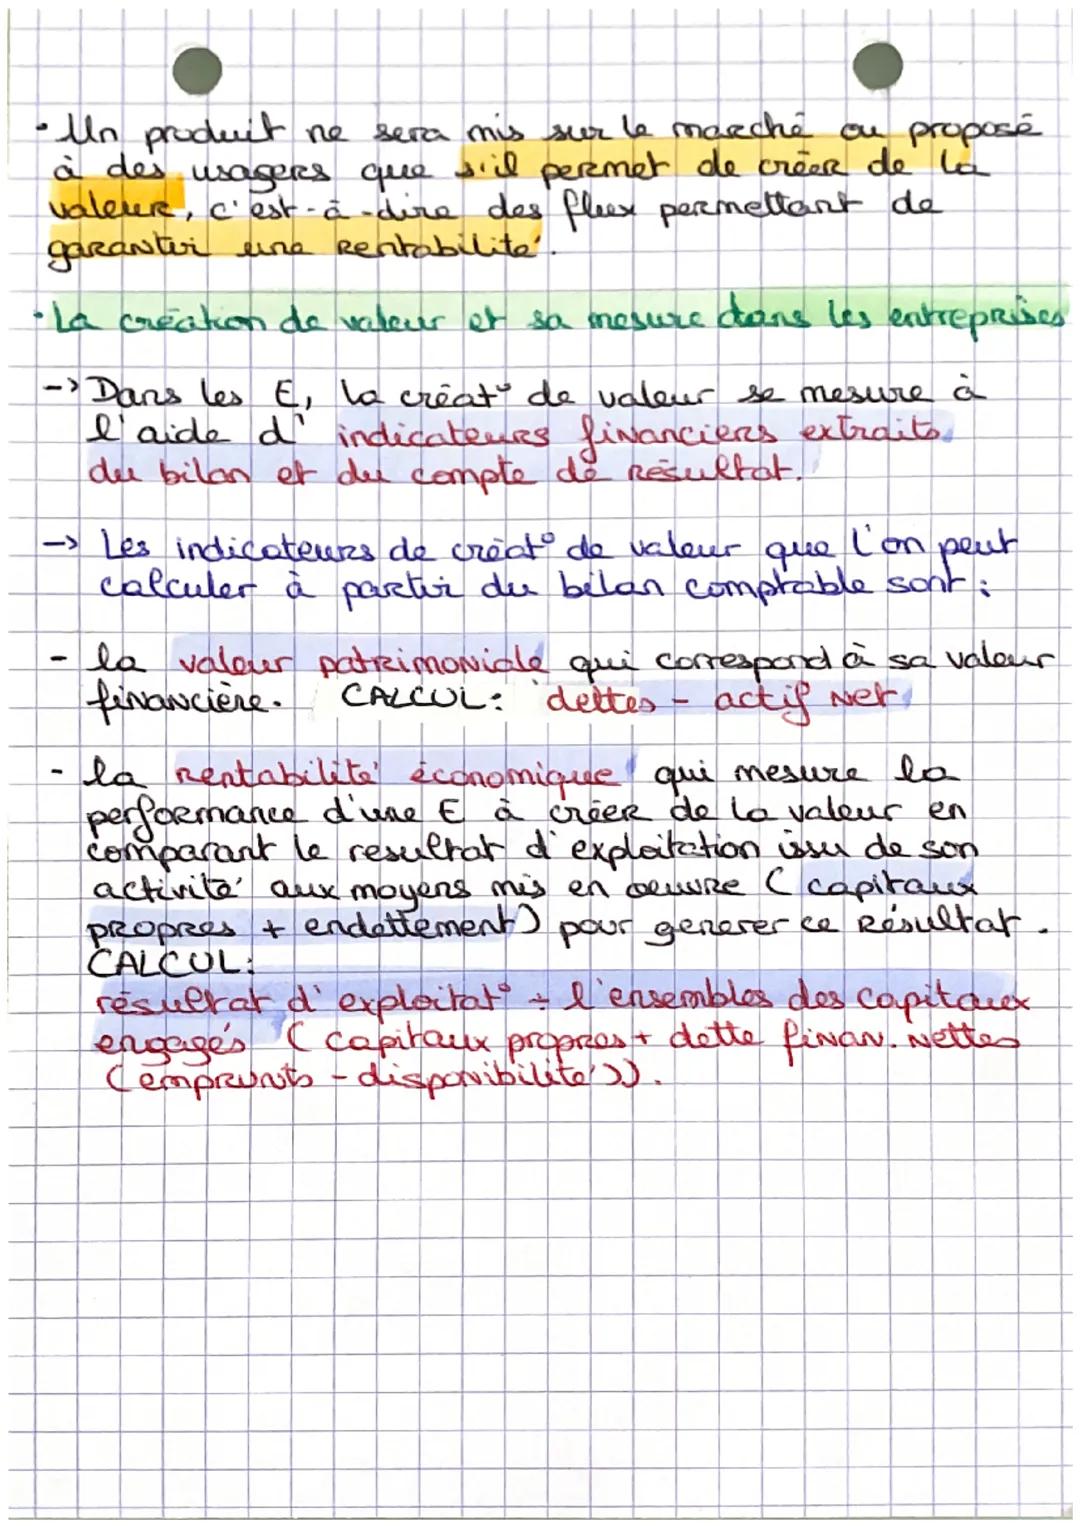 • Un produit ne sera mis sur le marché ou proposé
à des usagers que s'il permet de créer de la
valeur, c'est-à-dire des flux permettant de
garantir une rentabilité.
• La création de valeur et sa mesure dans les entreprises
-> Dans les E, la créat° de valeur se mesure à
l'aide d' indicateurs financiers extraits
du bilan et du compte de résultat.
-> Les indicateurs de créat° de valeur que l'on peut
calculer à partir du bilan comptable sont :
- la valeur patrimoniale qui correspond à sa valeur
financière. CALCUL : dettes - actif net
- la rentabilité économique qui mesure la
performance d'une E à créer de la valeur en
comparant le resultat d'exploitation issu de son
activité aux moyens mis en oeuvre ( capitaux
propres + endettement) pour generer ce résultat.
CALCUL :
résultat d'exploitat° ÷ l'ensembles des capitaux
engagés ( capitaux propres + dette finan. nettes
(emprunts - disponibilité)).